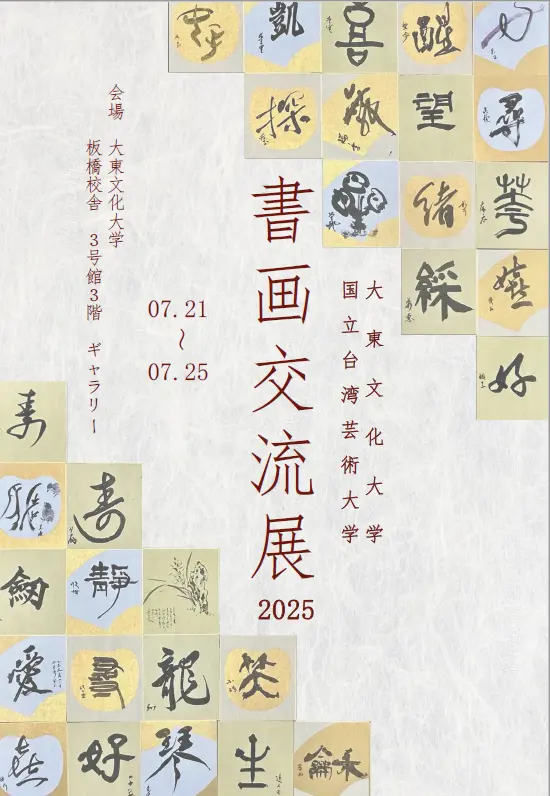 大東文化大学
国立台湾芸術大学
書画交流展
2025
07.21
~
07.25
会場 大東文化大学
板橋校舎 3号館3階 ギャラリー
凱
喜
醒
探
敬
望
尋
緒
華
綵
嬉
好
寿
寿
静
愛
龍
焚
喜
好
琴
生